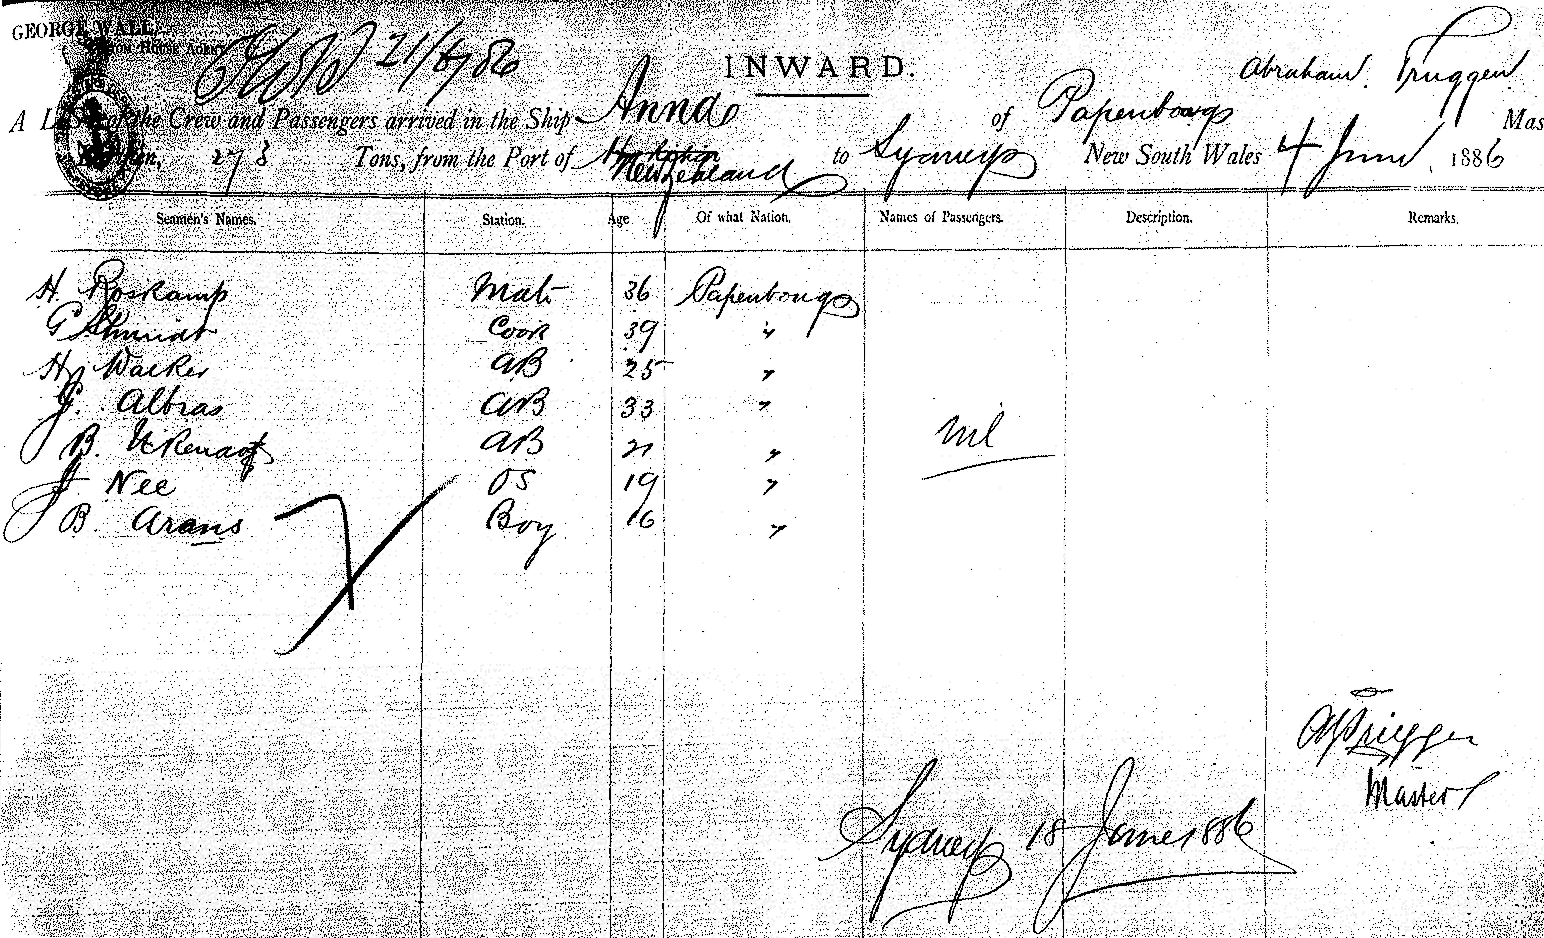 GEORGE WALL,
CUSTOM HOUSE AGENT
21/6/86
INWARD.
Abraham Truggen
A LIST of the Crew and Passengers arrived in the Ship Anna of Papenbourg Mas
Burthen, 273 Tons, from the Port of New Zealand to Sydney New South Wales 4 June 1886
Seamen's Names. Station. Age Of what Nation, Names of Passengers. Description. Remarks.
H. Roskamp Mate 36 Papenbourg
G Shmidt Cook 39 "
H. Walker AB 25 "
J. Albras AB 33 "
B. AB 21 "
Nil
J. Nee OS 19 "
B. Arans Boy 16 "
7
Master
Sydney 18 June 1886